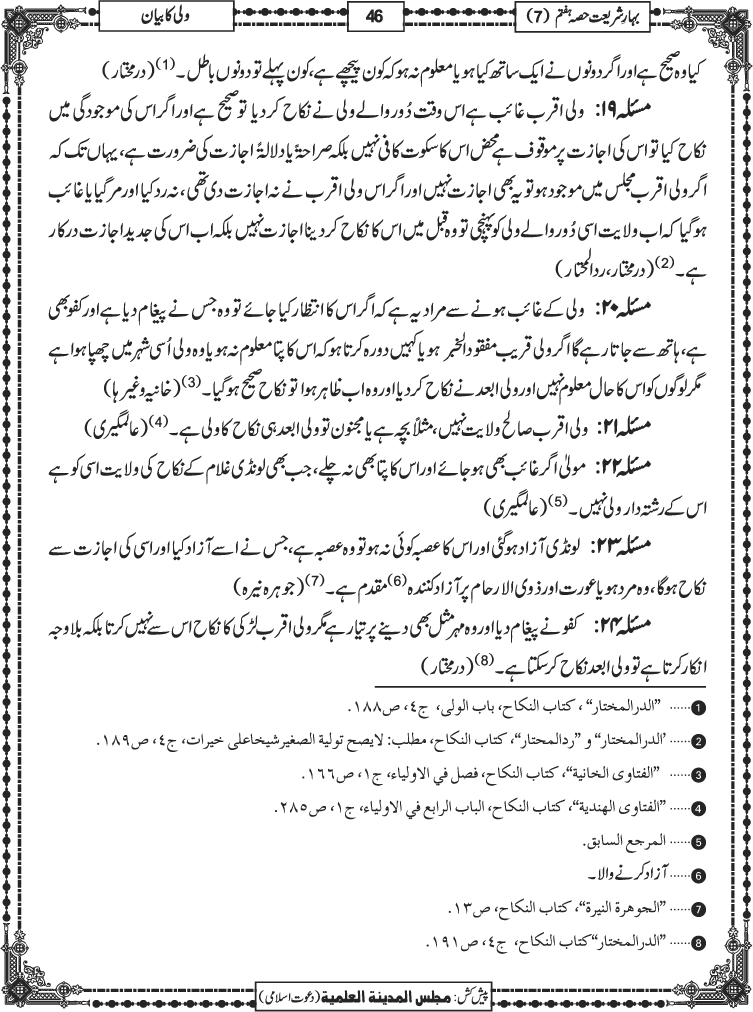 بہارِ شریعت حصہ ہفتم (7)
46
ولی کا بیان
کیا وہ صحیح ہے اور اگر دونوں نے ایک ساتھ کیا ہو یا معلوم نہ ہو کہ کون پیچھے ہے، کون پہلے تو دونوں باطل۔(1) (درمختار)
مسئلہ ۱۹: ولی اقرب غائب ہے اس وقت دُور والے ولی نے نکاح کر دیا تو صحیح ہے اور اگر اس کی موجودگی میں
نکاح کیا تو اس کی اجازت پر موقوف ہے محض اس کا سکوت کافی نہیں بلکہ صراحۃً یا دلالۃً اجازت کی ضرورت ہے، یہاں تک کہ
اگر ولی اقرب مجلس میں موجود ہو تو یہ بھی اجازت نہیں اور اگر اس ولی اقرب نے نہ اجازت دی تھی، نہ رد کیا اور مر گیا یا غائب
ہوگیا کہ اب ولایت اسی دُور والے ولی کو پہنچی تو وہ قبل میں اس کا نکاح کر دینا اجازت نہیں بلکہ اب اس کی جدید اجازت درکار
ہے۔(2) (درمختار، ردالمحتار)
مسئلہ ۲۰: ولی کے غائب ہونے سے مراد یہ ہے کہ اگر اس کا انتظار کیا جائے تو وہ جس نے پیغام دیا ہے اور کفو بھی
ہے، ہاتھ سے جاتا رہے گا اگر ولی قریب مفقود الخبر ہو یا کہیں دورہ کرتا ہو کہ اس کا پتا معلوم نہ ہو یا وہ ولی اُسی شہر میں چھپا ہوا ہے
مگر لوگوں کو اس کا حال معلوم نہیں اور ولی ابعد نے نکاح کر دیا اور وہ اب ظاہر ہوا تو نکاح صحیح ہوگیا۔(3) (خانیہ وغیرہا)
مسئلہ ۲۱: ولی اقرب صالح ولایت نہیں، مثلاً بچہ ہے یا مجنون تو ولی ابعد ہی نکاح کا ولی ہے۔(4) (عالمگیری)
مسئلہ ۲۲: مولیٰ اگر غائب بھی ہو جائے اور اس کا پتا بھی نہ چلے، جب بھی لونڈی غلام کے نکاح کی ولایت اسی کو ہے
اس کے رشتہ دار ولی نہیں۔(5) (عالمگیری)
مسئلہ ۲۳: لونڈی آزاد ہوگئی اور اس کا عصبہ کوئی نہ ہو تو وہ عصبہ ہے، جس نے اسے آزاد کیا اور اسی کی اجازت سے
نکاح ہوگا، وہ مرد ہو یا عورت اور ذوی الارحام پر آزاد کنندہ(6) مقدم ہے۔(7) (جوہرہ نیرہ)
مسئلہ ۲۴: کفو نے پیغام دیا اور وہ مہر مثل بھی دینے پر تیار ہے مگر ولی اقرب لڑکی کا نکاح اس سے نہیں کرتا بلکہ بلاوجہ
انکار کرتا ہے تو ولی ابعد نکاح کر سکتا ہے۔(8) (درمختار)
1...... ”الدرالمختار“، كتاب النكاح، باب الولى، ج٤، ص١٨٨.
2...... ”الدرالمختار“ و ”ردالمحتار“، كتاب النكاح، مطلب: لايصح تولية الصغيرشيخاعلى خيرات، ج٤، ص١٨٩.
3...... ”الفتاوى الخانية“، كتاب النكاح، فصل في الاولياء، ج١، ص١٦٦.
4...... ”الفتاوى الهندية“، كتاب النكاح، الباب الرابع في الاولياء، ج١، ص٢٨٥.
5...... المرجع السابق.
6...... آزاد کرنے والا۔
7...... ”الجوهرة النيرة“، كتاب النكاح، ص١٣.
8...... ”الدرالمختار“كتاب النكاح، ج٤، ص١٩١.
پیش کش: مجلس المدينة العلمية (دعوت اسلامی)